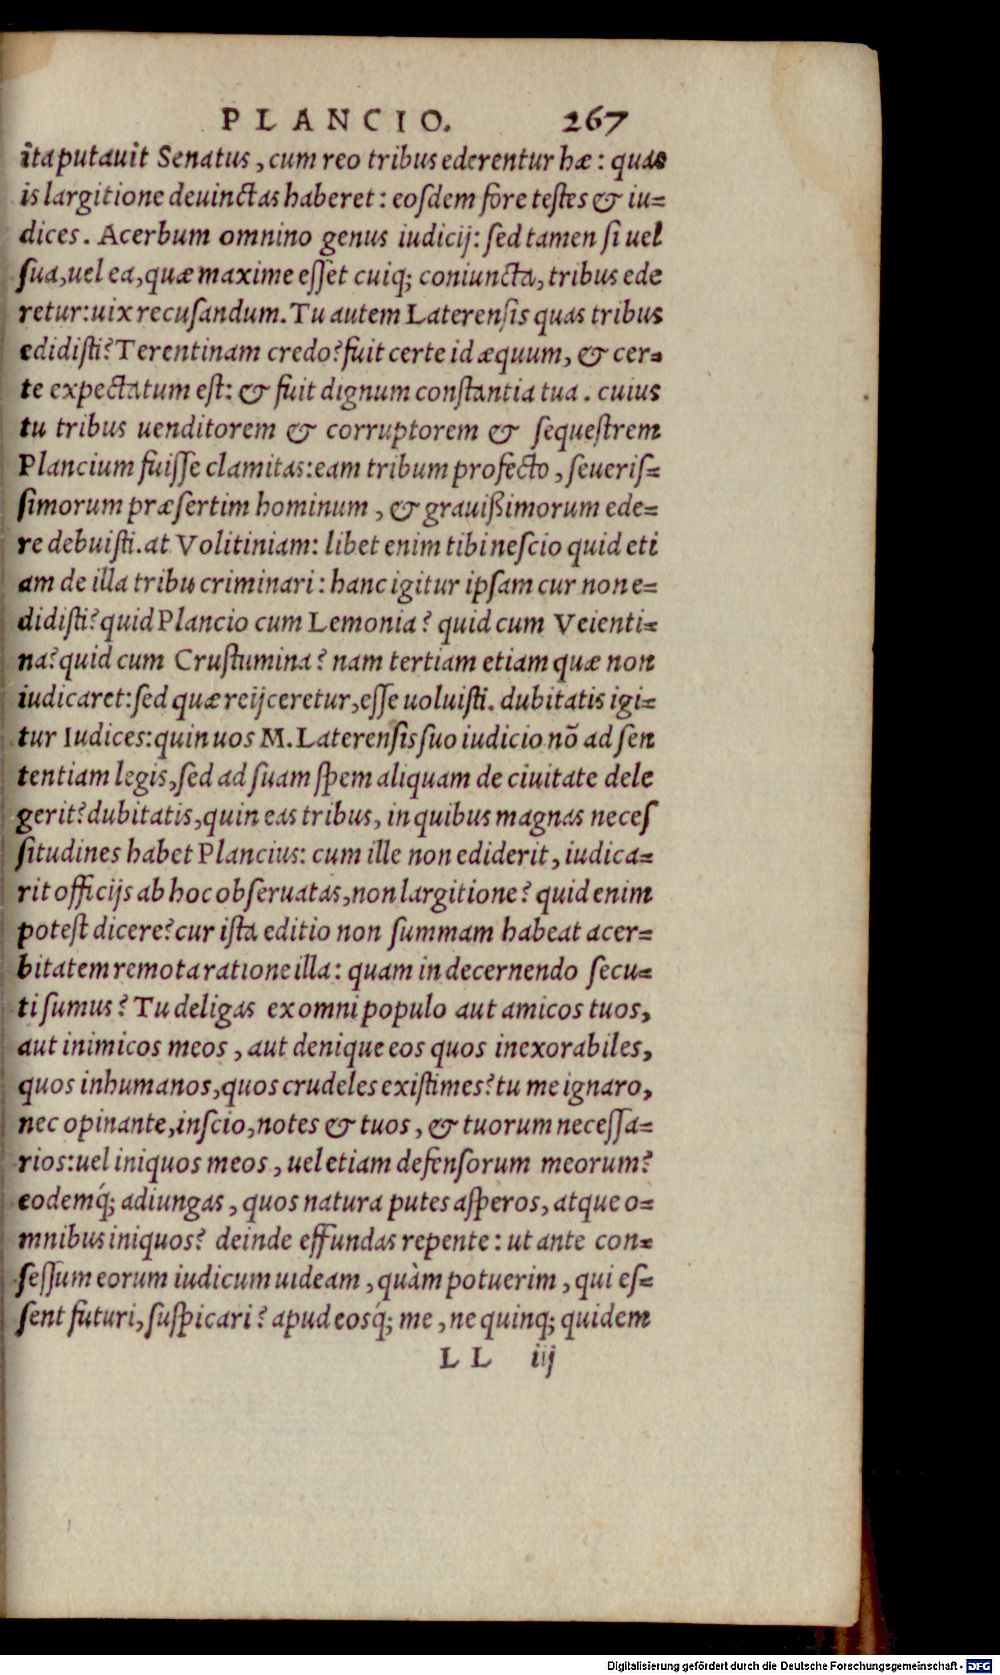 PLANCIO. 267
ita putauit Senatus, cum reo tribus ederentur hæ: quas
is largitione deuinctas haberet: eosdem fore testes & iu=
dices. Acerbum omnino genus iudicij: sed tamen si uel
sua, uel ea, quæ maxime esset cuiq; coniuncta, tribus ede
retur: uix recusandum. Tu autem Laterensis quas tribus
edidisti? Terentinam credo? fuit certe id æquum, & cer=
te expectatum est: & fuit dignum constantia tua. cuius
tu tribus uenditorem & corruptorem & sequestrem
Plancium fuisse clamitas: eam tribum profecto, seueris=
simorum præsertim hominum, & grauißimorum ede=
re debuisti. at Volitiniam: libet enim tibi nescio quid eti
am de illa tribu criminari: hanc igitur ipsam cur non e=
didisti? quid Plancio cum Lemonia? quid cum Veienti=
na? quid cum Crustumina? nam tertiam etiam quæ non
iudicaret: sed quæ reijceretur, esse uoluisti. dubitatis igi=
tur Iudices: quin uos M. Laterensis suo iudicio nõ ad sen
tentiam legis, sed ad suam spem aliquam de ciuitate dele
gerit? dubitatis, quin eas tribus, in quibus magnas neces
situdines habet Plancius: cum ille non ediderit, iudica=
rit officijs ab hoc obseruatas, non largitione? quid enim
potest dicere? cur ista editio non summam habeat acer=
bitatem remota ratione illa: quam in decernendo secu=
ti sumus? Tu deligas ex omni populo aut amicos tuos,
aut inimicos meos, aut denique eos quos inexorabiles,
quos inhumanos, quos crudeles existimes? tu me ignaro,
nec opinante, inscio, notes & tuos, & tuorum necessa=
rios: uel iniquos meos, uel etiam defensorum meorum?
eodemq́; adiungas, quos natura putes asperos, atque o=
mnibus iniquos? deinde effundas repente: ut ante con=
sessum eorum iudicum uideam, quàm potuerim, qui es=
sent futuri, suspicari? apud eosq́; me, ne quinq; quidem
LL iij
Digitalisierung gefördert durch die Deutsche Forschungsgemeinschaft - DFG